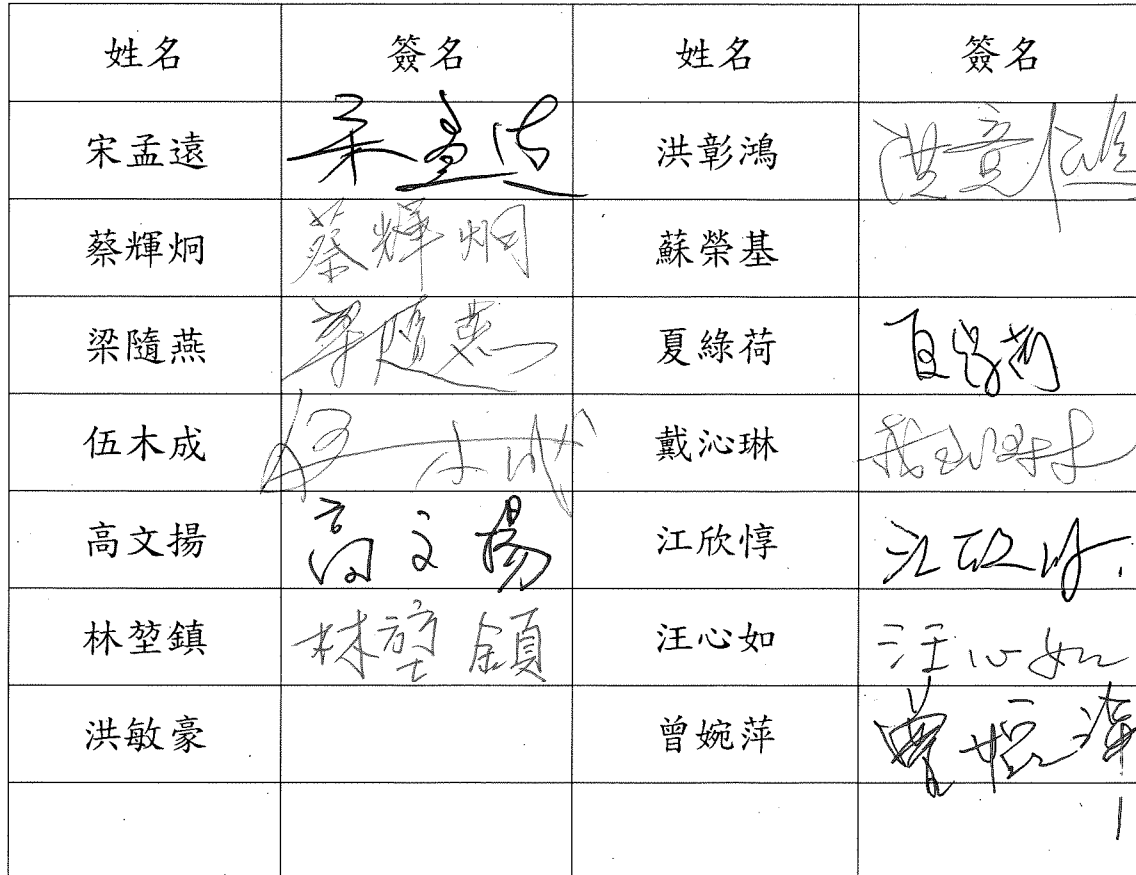 姓名 簽名 姓名 簽名
宋孟遠 宋孟遠 洪彰鴻 洪彰鴻
蔡輝炯 蔡輝炯 蘇榮基
梁隨燕 梁隨燕 夏綠荷 夏綠荷
伍木成 伍木成 戴沁琳
高文揚 高文揚 江欣惇
林堃鎮 林堃鎮 汪心如 汪心如
洪敏豪 曾婉萍 曾婉萍